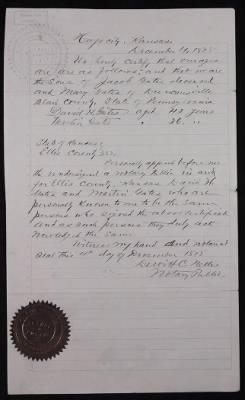 Hays City, Kansas
December 11, 1885
We hereby certify that our ages
are as follows; and that we are
the sons of Jacob Gates deceased
and Mary Gates of
Blair County, State of Pennsylvania
David H. Gates, aged 43 years
Martin Gates " 36 "
State of Kansas
Ellis County ss.
Personally appeared before me
the undersigned a notary Public in and
for Ellis County, Kansas David H.
Gates and Martin Gates who are
personally known to me to be the same
persons who signed the above certificate
and as such persons they duly ack
nowledged the same.
Witness my hand and notarial
seal this 11th day of December 1885
C.
Notary Public.